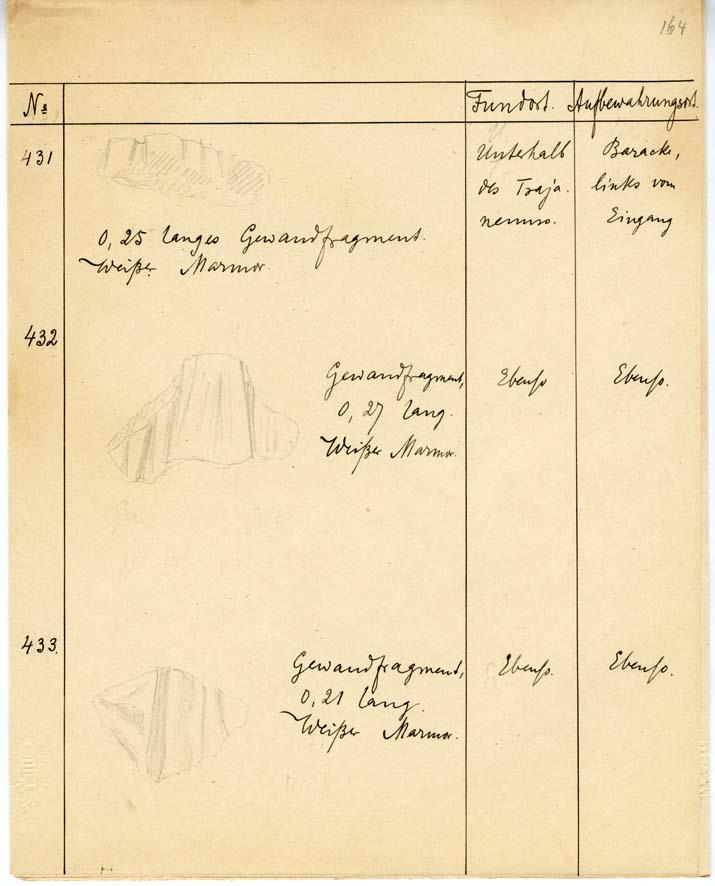 164
No Fundort. Aufbewahrungsort.
431
0,25 langes Gewandfragment.
Weißer Marmor.
Unterhalb
des Traja-
neums.
Baracke,
links vom
Eingang
432
Gewandfragment,
0,27 lang.
Weißer Marmor.
Ebenso
Ebenso.
433.
Gewandfragment,
0,21 lang.
Weißer Marmor.
Ebenso.
Ebenso.